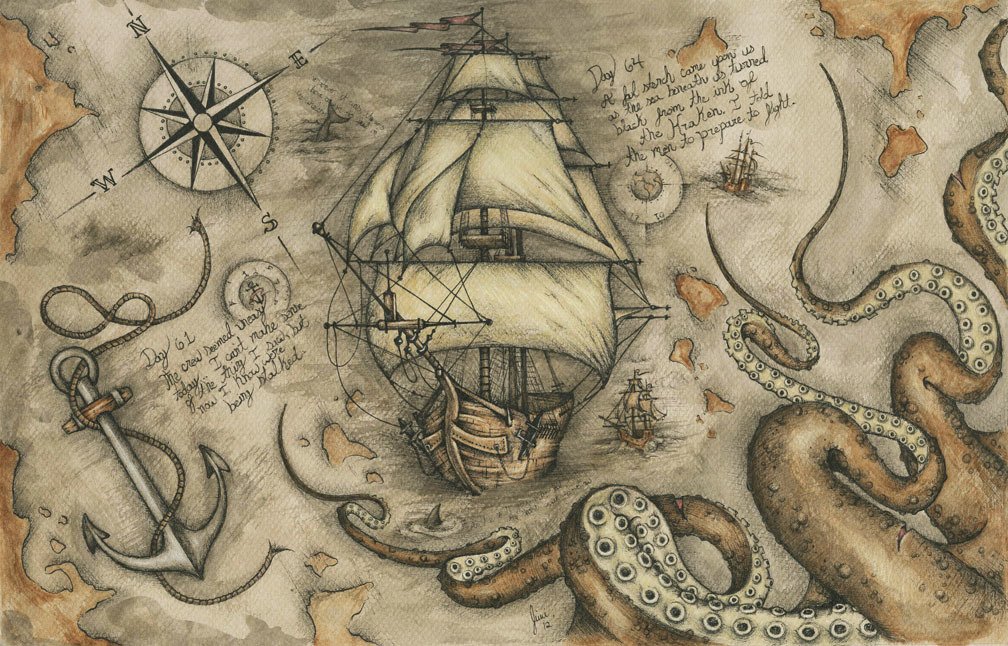 N
E
W
S
Day 64
A fol stench came upon us
as the sea beneath us turned
black from the ink of
the Kraken. I told
the men to prepare to fight.
Day 61
The crew seemed uneasy
today. I cant make sense
of the thing I saw but
now I know we're
being stalked.
12